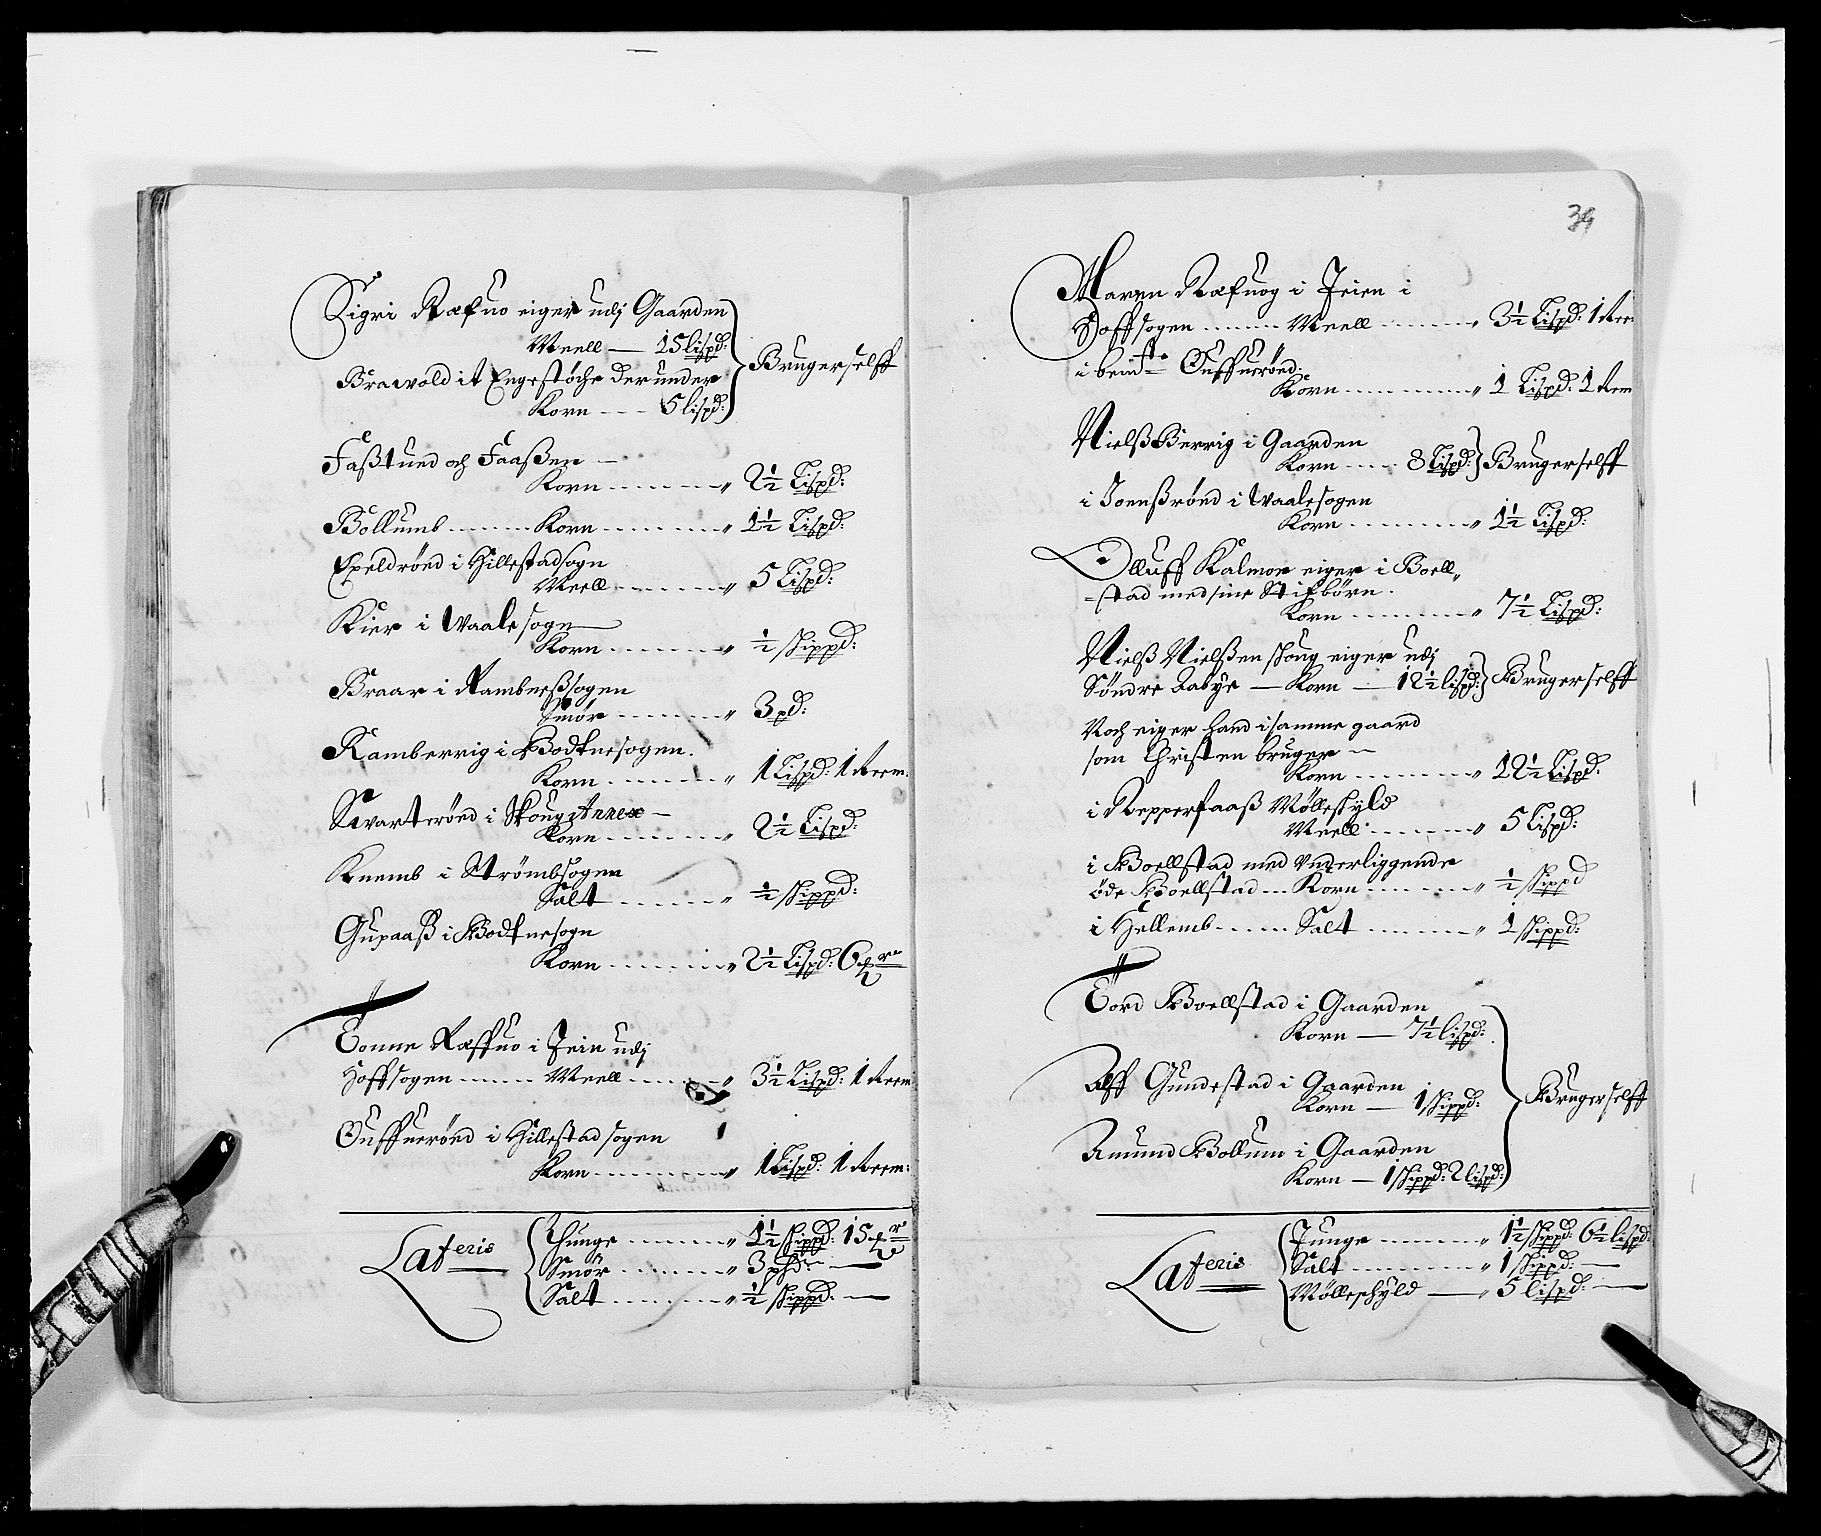 Sigri Ræfuo eiger udj Gaarden
Meell — 15 lispd:
Brawold it Engestøche der under
Korn --- 5 lispd:
Brugerselff
Faßtued och Faaßen —
Korn ........ 2½ Lispd:
Bollumb ........ Korn ........ 1½ Lispd:
Expeldrønd i Hillestadsogn
Meell ........ 5 Lispd:
Kier i Waalesogn
Korn ........ ½ skippd:
Braar i Rambneßsogen
Smør ........ 3 pd:
Ramberrig i Bodtnesogen.
Korn ........ 1 Lispd: 1 Rem:
Swarterønd i Skoug Annex —
Korn ........ 2½ Lispd:
Knemb i Strømbsogen
Salt ........ ½ skippd:
Gupaaß i Bodtnesogn
Korn ........ 2½ Lispd: 6
Tonne Ræffuo i Jein udj
Hoffsogen ........ Meell ........ 3½ Lispd: 1 Rem
Ouffuerønd i Hillestadsogen
Korn ........ 1 Lispd: 1 Rem:
Lateris
Thunge ........ 1½ skippd: 15
Smør ........ 3 pd: —
Salt ........ ½ skippd: —
39
Maren Ræfuog i Jeien i
Hoffsogen ........ Meell ........ 3½ Lispd: 1 Rem
i bemte Ouffuerønd.
Korn ........ 1 Lispd: 1 Rem
Nielß Bierrig i Gaarden
Korn .... 8 Lispd: Brugerselff
i Joenßrønd i Waalesogen
Korn ........ 1½ Lispd:
Olluff Kalmoe eiger i Boell„
-stad med sine Stifbørn.
Korn ........ 7½ Lispd:
Nielß Nielßen skoug eiger udj
Søndre Aabye — Korn — 12½ lispd: Brugerselff
Noch eiger hand i samme gaard
som Christen bruger —
Korn ........ 12½ Lispd:
i Repperfaaß Mølleskyld
Meell ........ 5 Lispd:
i Boellstad med underliggende
øde Boellstad ... Korn ........ ½ skippd
i Hellemb ........ Salt ........ 1 skippd:
Tord Boellstad i Gaarden
Korn — 7½ lispd:
Alff Gundestad i Gaarden
Korn — 1 skippd:
Brugerselff
Amund Bollum i Gaarden
Korn — 1 skippd: 2 lispd:
Lateris
Tunge ........ 1½ skippd: 6½ lispd:
Salt ........ 1 skippd: —
Mølleskyld — 5 lispd: —